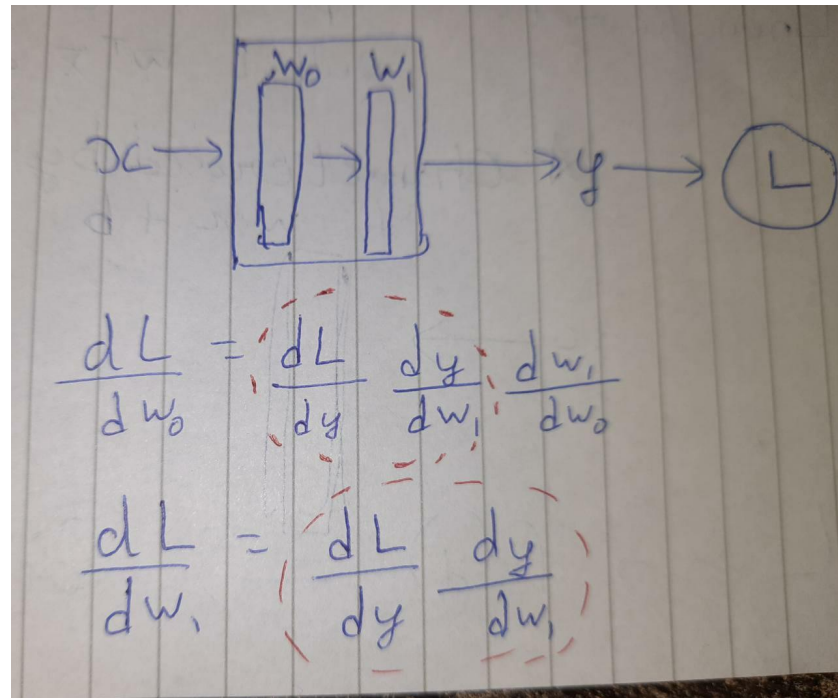 W₀ W₁
x → → → y → L
dL/dw₀ = dL/dy dy/dw₁ dw₁/dw₀
dL/dw₁ = dL/dy dy/dw₁